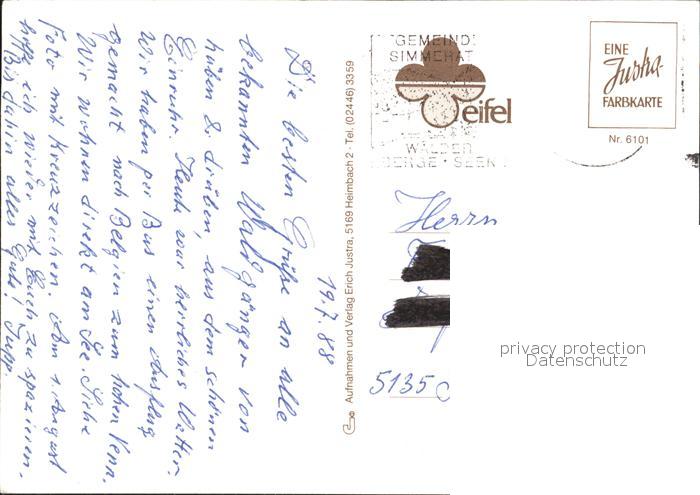 19.7.88
Die besten Grüße an alle
bekannten Waldgänger von
hüben & drüben, aus dem schönen
Einruhr. Heute war herrliches Wetter.
Wir haben per Bus einen Ausflug
gemacht nach Belgien zum hohen Venn.
Wir wohnen direkt am See. Siehe
Foto mit Kreuzzeichen. Am 1. August
hoffe ich wieder mit Euch zu spazieren.
Bis dahin alles Gute! Jupp
Aufnahmen und Verlag Erich Justra, 5169 Heimbach 2 · Tel. (02446) 3359
GEMEIND
SIMMERAT
eifel
WÄLDER
BERGE · SEEN
EINE
Justra
FARBKARTE
Nr. 6101
Herrn
5135
privacy protection
Datenschutz